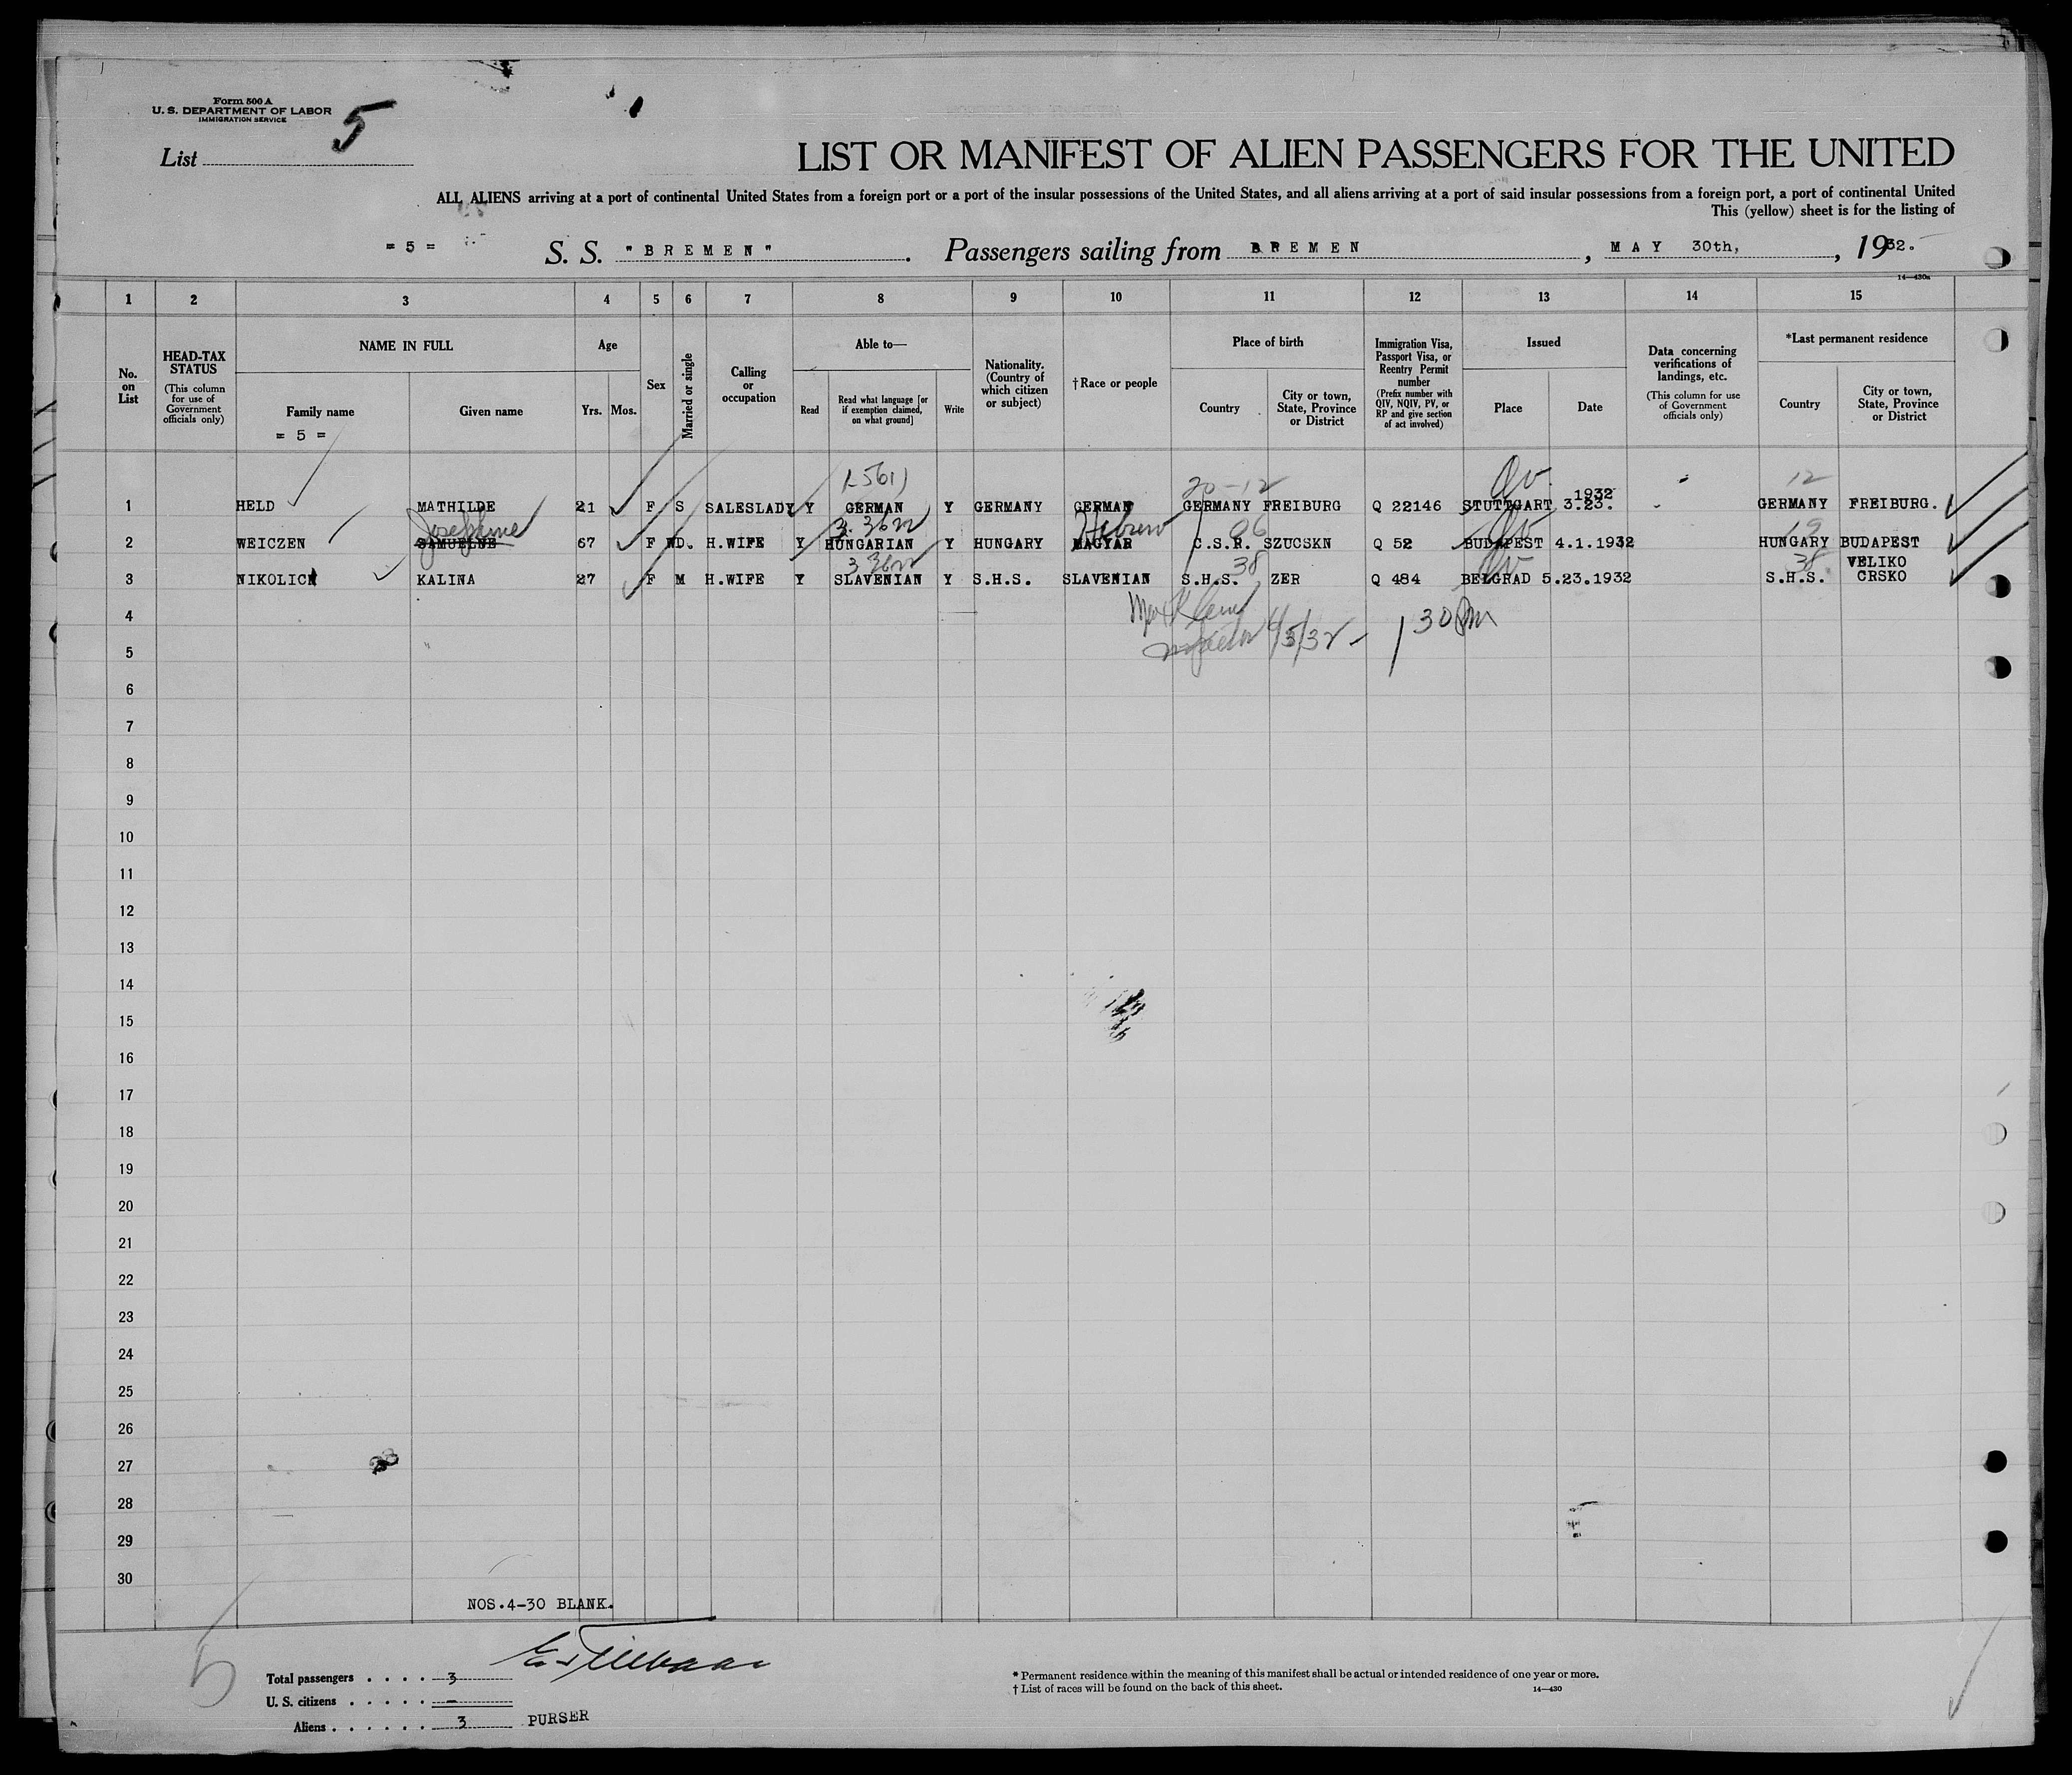 Form 500 A
U. S. DEPARTMENT OF LABOR
IMMIGRATION SERVICE
5
List
LIST OR MANIFEST OF ALIEN PASSENGERS FOR THE UNITED
ALL ALIENS arriving at a port of continental United States from a foreign port or a port of the insular possessions of the United States, and all aliens arriving at a port of said insular possessions from a foreign port, a port of continental United
This (yellow) sheet is for the listing of
= 5 = S. S. "BREMEN". Passengers sailing from BREMEN, MAY 30th, 1932.
14—430a
1 2 3 4 5 6 7 8 9 10 11 12 13 14 15
No. on List
HEAD-TAX STATUS (This column for use of Government officials only)
NAME IN FULL
Family name
Given name
= 5 =
Age
Yrs. Mos.
Sex
Married or single
Calling or occupation
Able to—
Read
Read what language [or if exemption claimed, on what ground]
Write
Nationality. (Country of which citizen or subject)
†Race or people
Place of birth
Country
City or town, State, Province or District
Immigration Visa, Passport Visa, or Reentry Permit number (Prefix number with QIV, NQIV, PV, or RP and give section of act involved)
Issued
Place
Date
Data concerning verifications of landings, etc. (This column for use of Government officials only)
*Last permanent residence
Country
City or town, State, Province or District
20-12 12
1 HELD MATHILDE 21 F S SALESLADY Y GERMAN Y GERMANY GERMAN GERMANY FREIBURG Q 22146 STUTTGART 3.23. 1932 GERMANY FREIBURG.
Josephine Hebrew 06 19
2 WEICZEN SAMUELNE 67 F WD. H.WIFE Y HUNGARIAN Y HUNGARY MAGYAR C.S.R. SZUCSKN Q 52 BUDAPEST 4.1.1932 HUNGARY BUDAPEST
38 38
3 NIKOLICH KALINA 27 F M H.WIFE Y SLAVENIAN Y S.H.S. SLAVENIAN S.H.S. ZER Q 484 BELGRAD 5.23.1932 S.H.S. VELIKO CRSKO
4
6/5/32 - 1 30 PM
5
6
7
8
9
10
11
12
13
14
15
16
17
18
19
20
21
22
23
24
25
26
27
28
29
30
NOS.4-30 BLANK.
5
Total passengers . . . . 3
U. S. citizens . . . . . —
Aliens . . . . . . 3 PURSER
* Permanent residence within the meaning of this manifest shall be actual or intended residence of one year or more.
† List of races will be found on the back of this sheet.
14—430